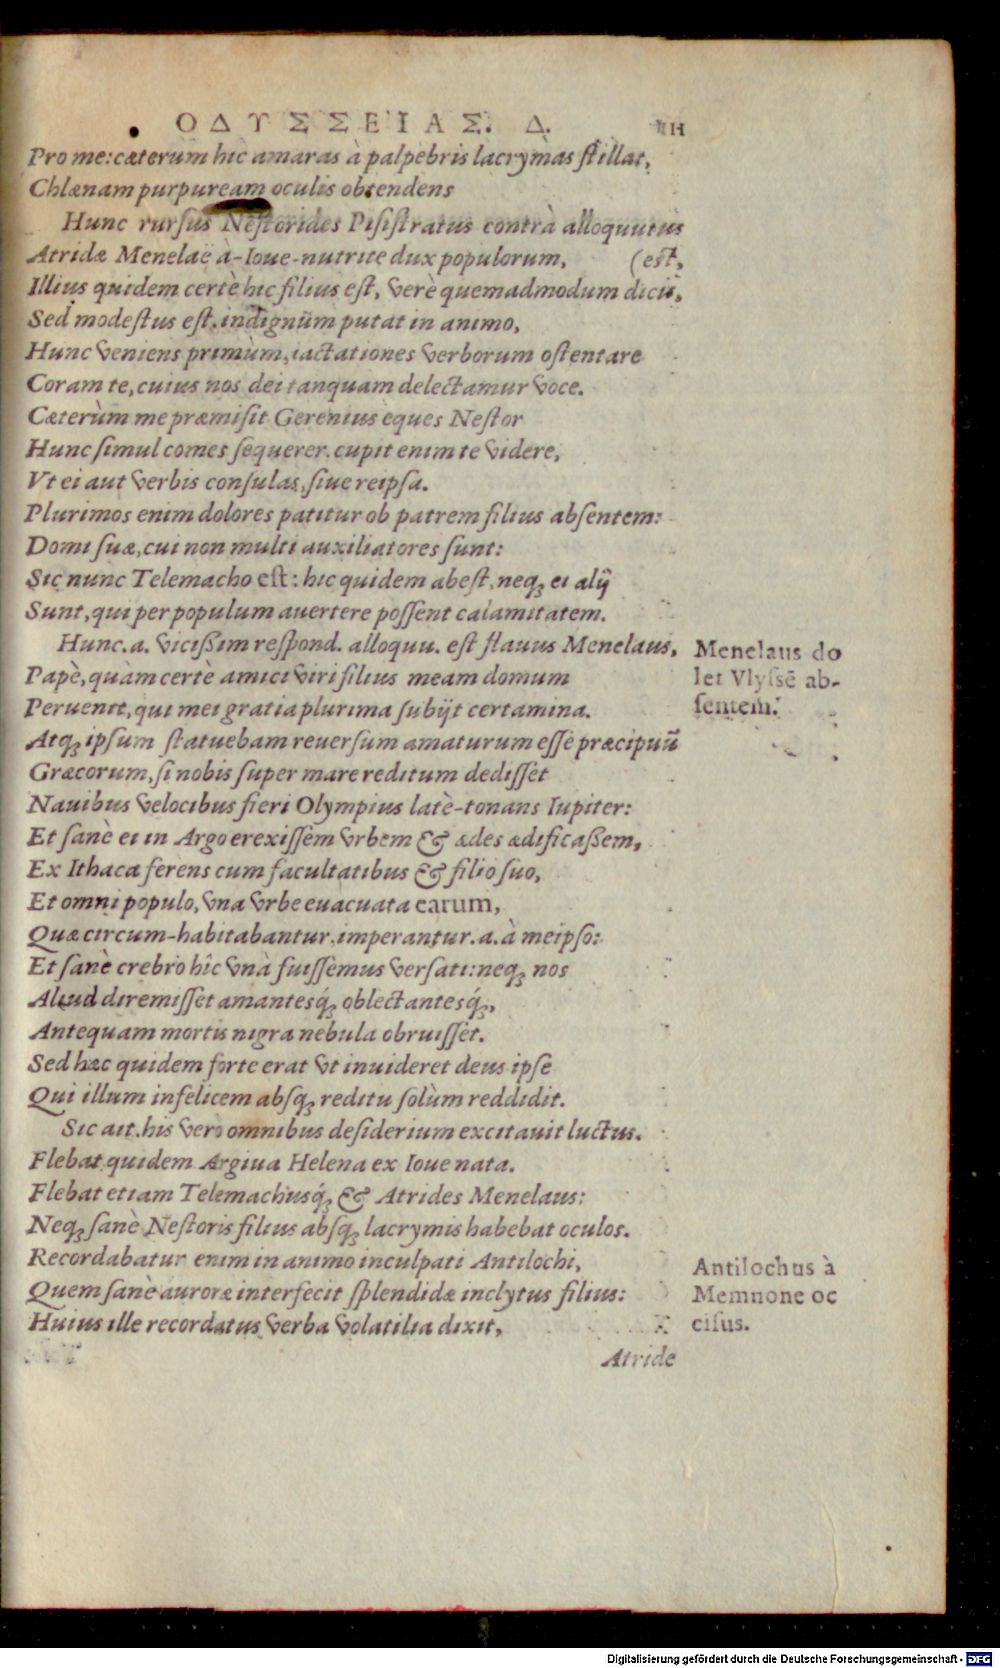 ΟΔΥΣΣΕΙΑΣ. Δ.
Pro me: cæterùm hic amaras à palpebris lacrymas stillat,
Chlænam purpuream oculis obtendens
Hunc rursus Nestorides Pisistratus contrà alloquutus
Atridæ Menelaë à-Ioue-nutrite dux populorum, (est,
Illius quidem certè hic filius est, verè quemadmodum dicis,
Sed modestus est. indignum putat in animo,
Hunc veniens primùm, iactationes verborum ostentare
Coram te, cuius nos dei tanquam delectamur voce.
Cæterùm me præmisit Gerenius eques Nestor
Hunc simul comes sequerer. cupit enim te videre,
Vt ei aut verbis consulas, siue reipsa.
Plurimos enim dolores patitur ob patrem filius absentem:
Domi suæ, cui non multi auxiliatores sunt:
Sic nunc Telemacho est: hic quidem abest, neq; ei alij
Sunt, qui per populum auertere possent calamitatem.
Hunc. a. vicißim respond. alloquu. est flauus Menelaus,
Papè, quàm certè amici viri filius meam domum
Peruenit, qui mei gratia plurima subijt certamina.
Atq; ipsum statuebam reuersum amaturum esse præcipuū
Græcorum, si nobis super mare reditum dedisset
Nauibus velocibus fieri Olympius latè-tonans Iupiter:
Et sanè ei in Argo erexissem vrbem & ædes ædificaßem,
Ex Ithaca ferens cum facultatibus & filio suo,
Et omni populo, vna vrbe euacuata earum,
Quæ circum-habitabantur. imperantur. a. à meipso:
Et sanè crebro hîc vnà fuissemus versati: neq; nos
Aliud diremisset amantesq́; oblectantesq́;,
Antequam mortis nigra nebula obruisset.
Sed hæc quidem forte erat vt inuideret deus ipse
Qui illum infelicem absq; reditu solùm reddidit.
Sic ait. his verò omnibus desiderium excitauit luctus.
Flebat quidem Argiua Helena ex Ioue nata.
Flebat etiam Telemachusq́; & Atrides Menelaus:
Neq; sanè Nestoris filius absq; lacrymis habebat oculos.
Recordabatur enim in animo inculpati Antilochi,
Quem sanè auroræ interfecit splendidæ inclytus filius:
Huius ille recordatus verba volatilia dixit,
Atride
Menelaus do
let Vlyssē ab-
sentem.
Antilochus à
Memnone oc
cisus.
Digitalisierung gefördert durch die Deutsche Forschungsgemeinschaft - DFG